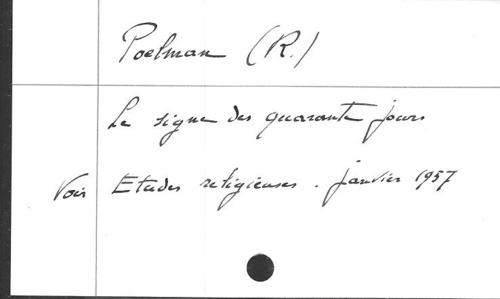 Poelman (R.)
Le signe des quarante jours
Voir Etudes religieuses. janvier 1957